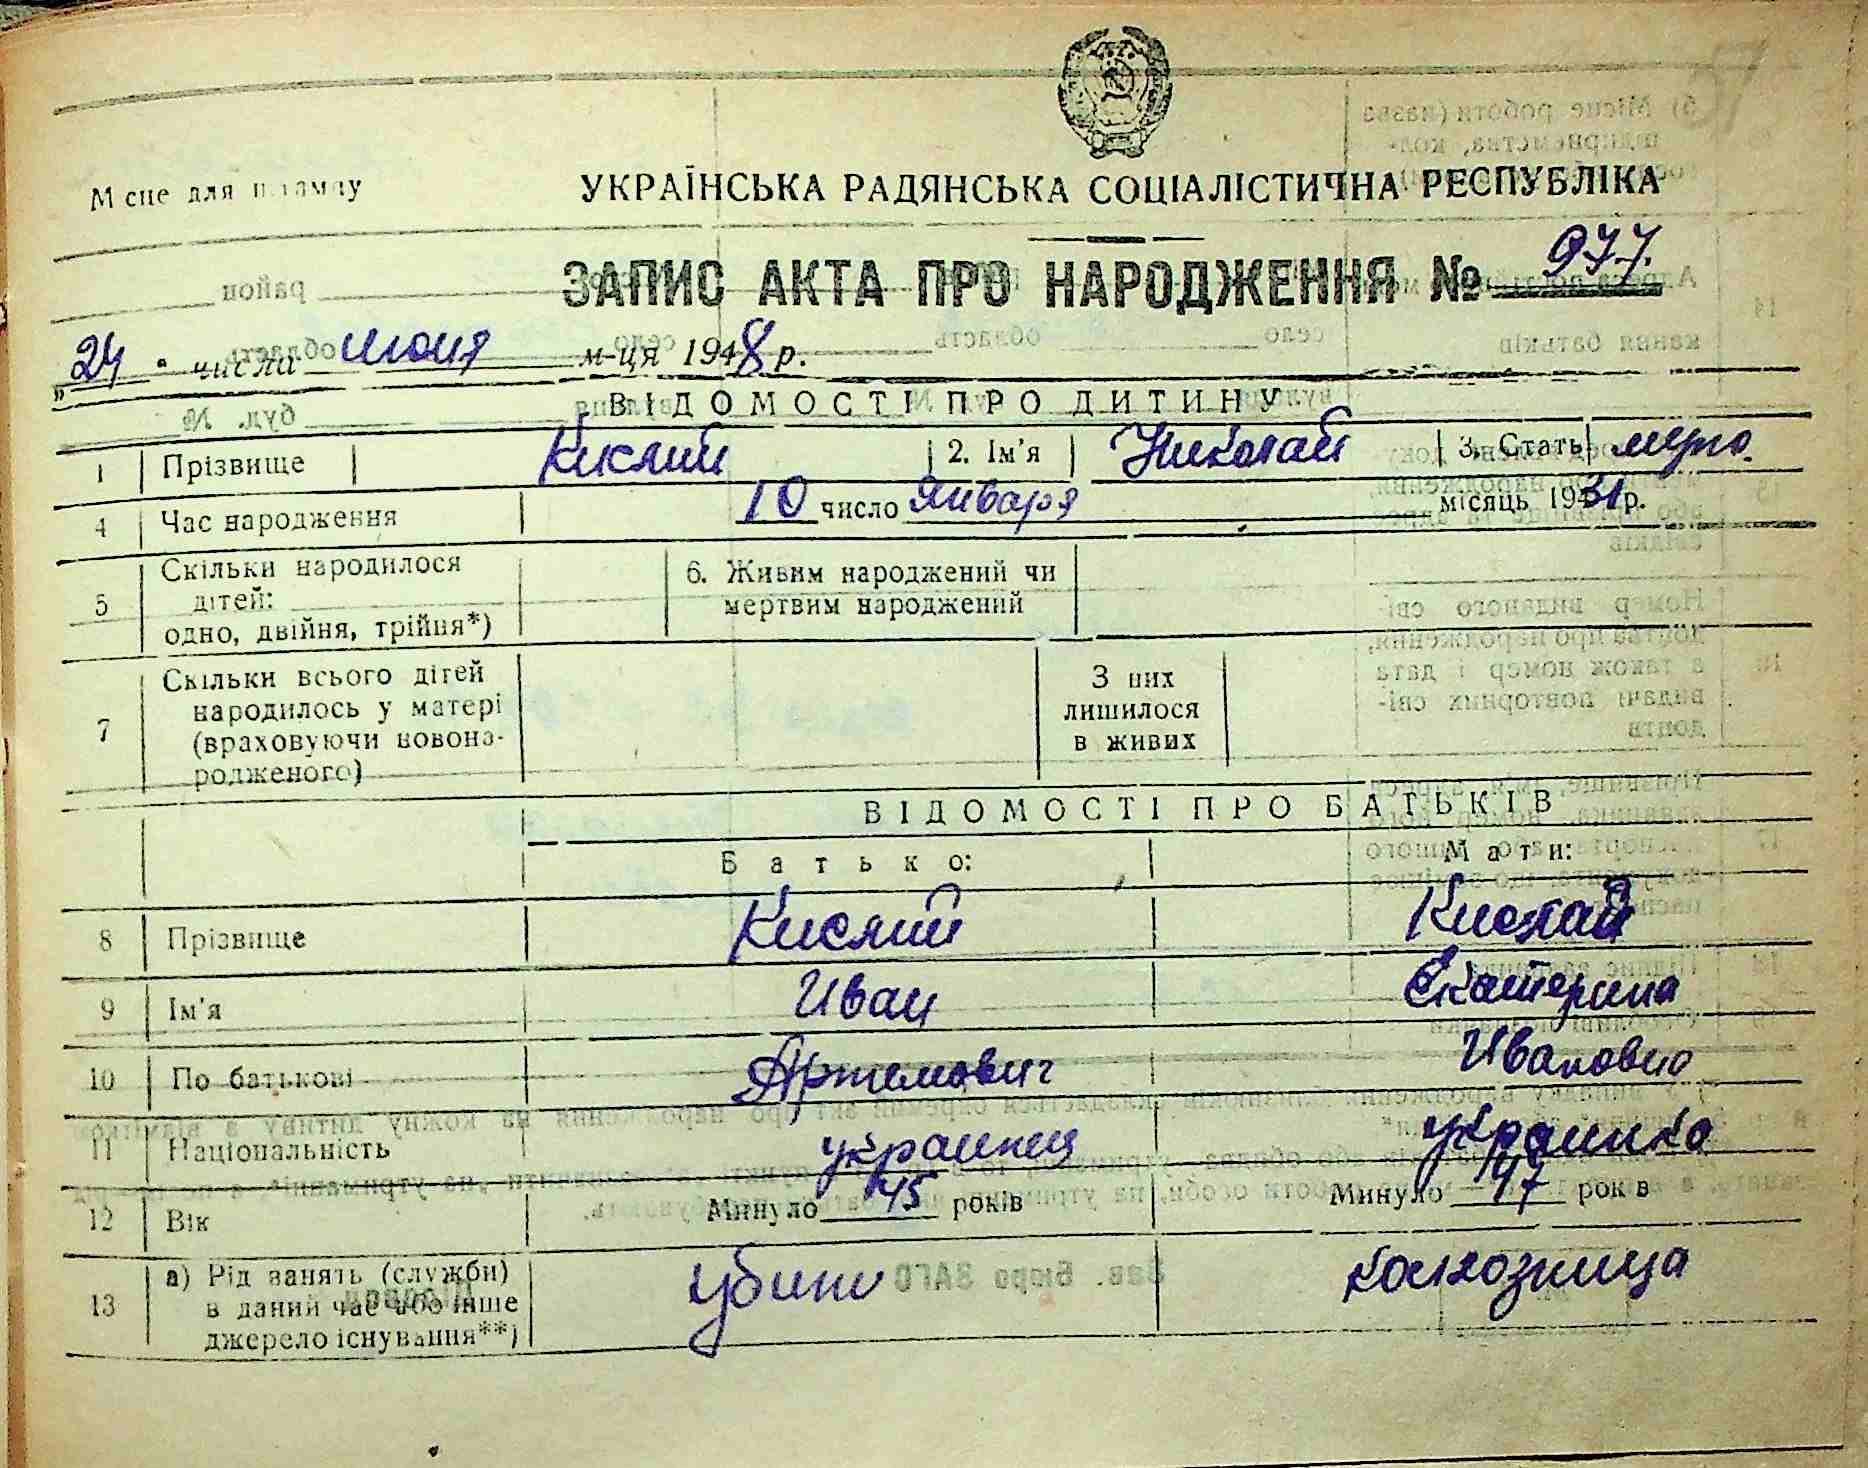 Місце для штампу
УКРАЇНСЬКА РАДЯНСЬКА СОЦІАЛІСТИЧНА РЕСПУБЛІКА
ЗАПИС АКТА ПРО НАРОДЖЕННЯ № 977.
„24“ числа июня м-ця 1948 р.
ВІДОМОСТІ ПРО ДИТИНУ
1 Прізвище Кислий 2. Ім'я Николай 3. Стать муж.
4 Час народження 10 число Января місяць 1931 р.
5 Скільки народилося
дітей:
одно, двійня, трійня*)
6. Живим народжений чи
мертвим народжений
7 Скільки всього дітей
народилось у матері
(враховуючи новона-
родженого)
З них
лишилося
в живих
ВІДОМОСТІ ПРО БАТЬКІВ
Батько: Мати:
8 Прізвище Кислий Кислай
9 Ім'я Иван Екатерина
10 По батькові Артемович Ивановна
11 Національність украинец украинка
12 Вік Минуло 45 років Минуло 47 років
13 а) Рід занять (служби)
в даний час або інше
джерело існування**)
убит колхозница